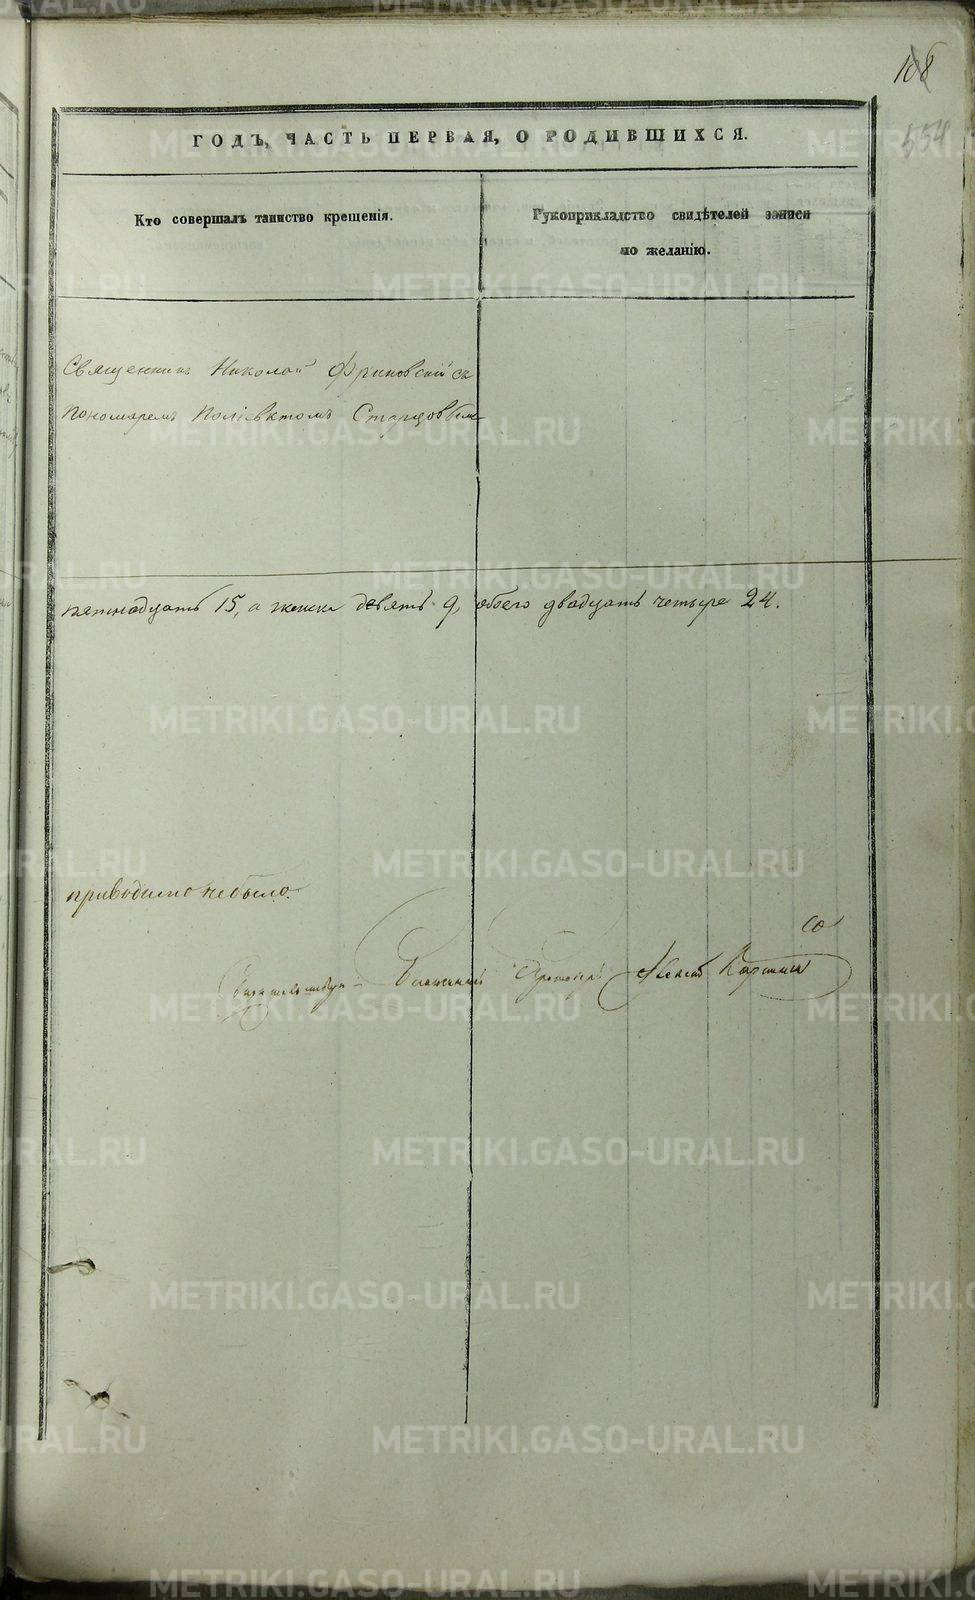 108
554
ГОДЪ, ЧАСТЬ ПЕРВАЯ, О РОДИВШИХСЯ.
Кто совершалъ таинство крещенія.
Рукоприкладство свидѣтелей записи
по желанію.
Священникъ Николай Фриновскій съ
пономаремъ Поліевктомъ Старцовымъ
пятнадцать 15, а женска девять 9, обоего двадцать четыре 24.
приводимо небыло.
Протоіерей Алексій
METRIKI.GASO-URAL.RU